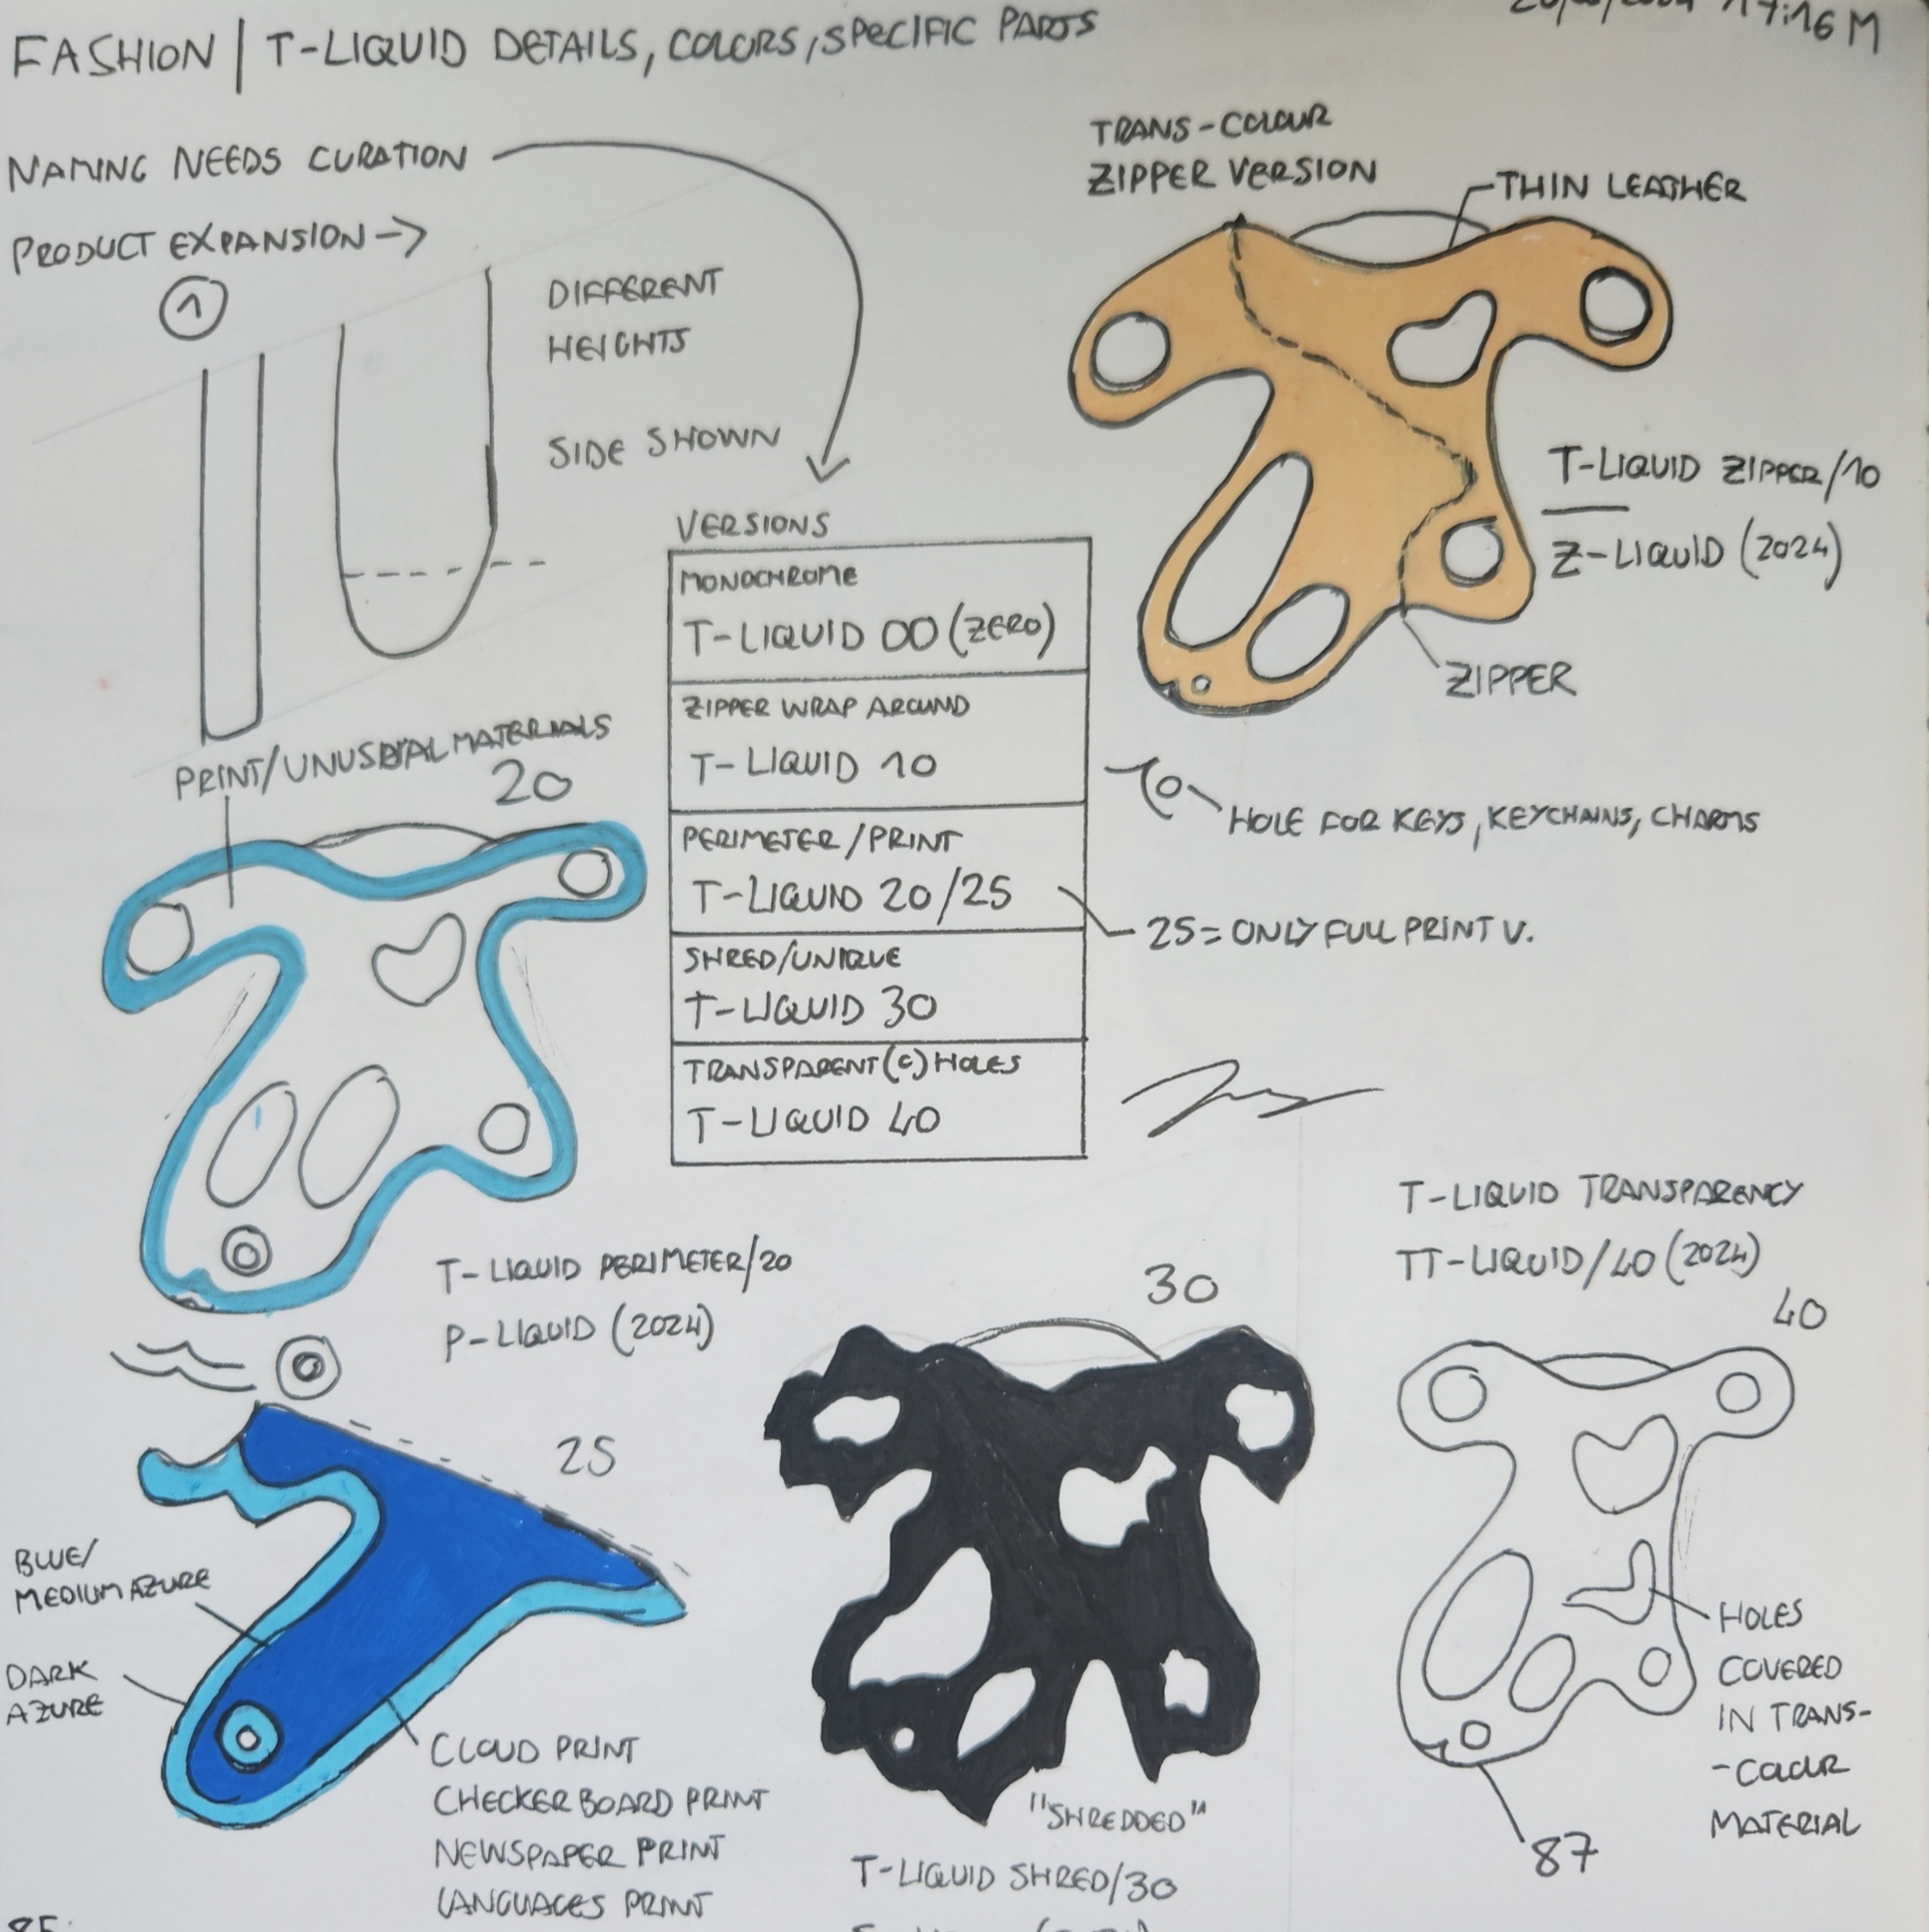 FASHION | T-LIQUID DETAILS, COLORS, SPECIFIC PARTS
17:16 M
NAMING NEEDS CURATION
PRODUCT EXPANSION →
1
DIFFERENT
HEIGHTS
SIDE SHOWN
TRANS-COLOUR
ZIPPER VERSION
THIN LEATHER
T-LIQUID ZIPPER/10
Z-LIQUID (2024)
ZIPPER
HOLE FOR KEYS, KEYCHAINS, CHARMS
VERSIONS
MONOCHROME
T-LIQUID 00 (ZERO)
ZIPPER WRAP AROUND
T-LIQUID 10
PERIMETER/PRINT
T-LIQUID 20/25
25 = ONLY FULL PRINT V.
SHRED/UNIQUE
T-LIQUID 30
TRANSPARENT (C) HOLES
T-LIQUID 40
PRINT/UNUSUAL MATERIALS
20
T-LIQUID PERIMETER/20
P-LIQUID (2024)
25
BLUE/
MEDIUM AZURE
DARK
AZURE
CLOUD PRINT
CHECKERBOARD PRINT
NEWSPAPER PRINT
LANGUAGES PRINT
30
"SHREDDED"
T-LIQUID SHRED/30
T-LIQUID TRANSPARENCY
TT-LIQUID/40 (2024)
40
HOLES
COVERED
IN TRANS-
-COLOUR
MATERIAL
87